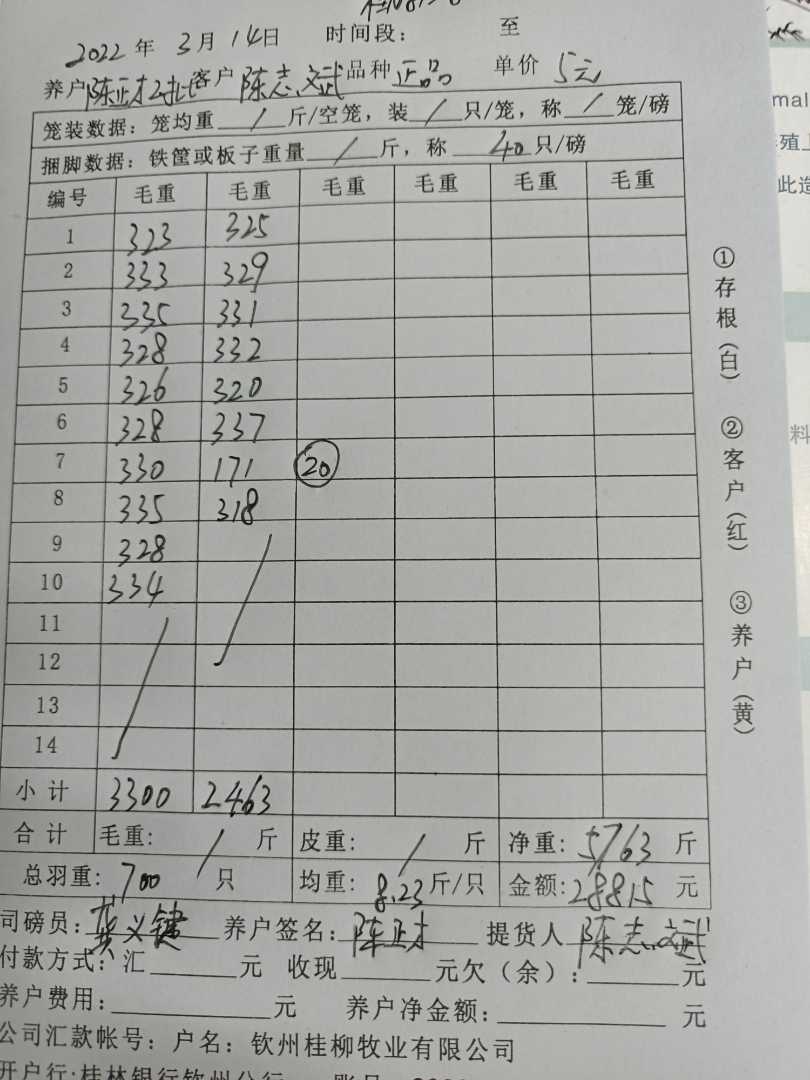 2022 年 3 月 14 日 时间段: 至
养户 陈正才 客户 陈志斌 品种 正品 单价 5元
笼装数据: 笼均重 / 斤/空笼, 装 / 只/笼, 称 / 笼/磅
捆脚数据: 铁筐或板子重量 / 斤, 称 40 只/磅
编号 毛重 毛重 毛重 毛重 毛重 毛重
1 323 325
2 333 329
3 335 331
4 328 332
5 326 320
6 328 337
7 330 171 20
8 335 318
9 328
10 334
11
12
13
14
小计 3300 2463
合计 毛重: / 斤 皮重: / 斤 净重: 5763 斤
总羽重: 700 只 均重: 8.23 斤/只 金额: 28815 元
司磅员: 义键 养户签名: 陈正才 提货人 陈志斌
付款方式: 汇 元 收现 元欠(余): 元
养户费用: 元 养户净金额: 元
公司汇款帐号: 户名: 钦州桂柳牧业有限公司
开户行:桂林银行钦州分行
①存根(白) ②客户(红) ③养户(黄)
mal
殖
此造
料